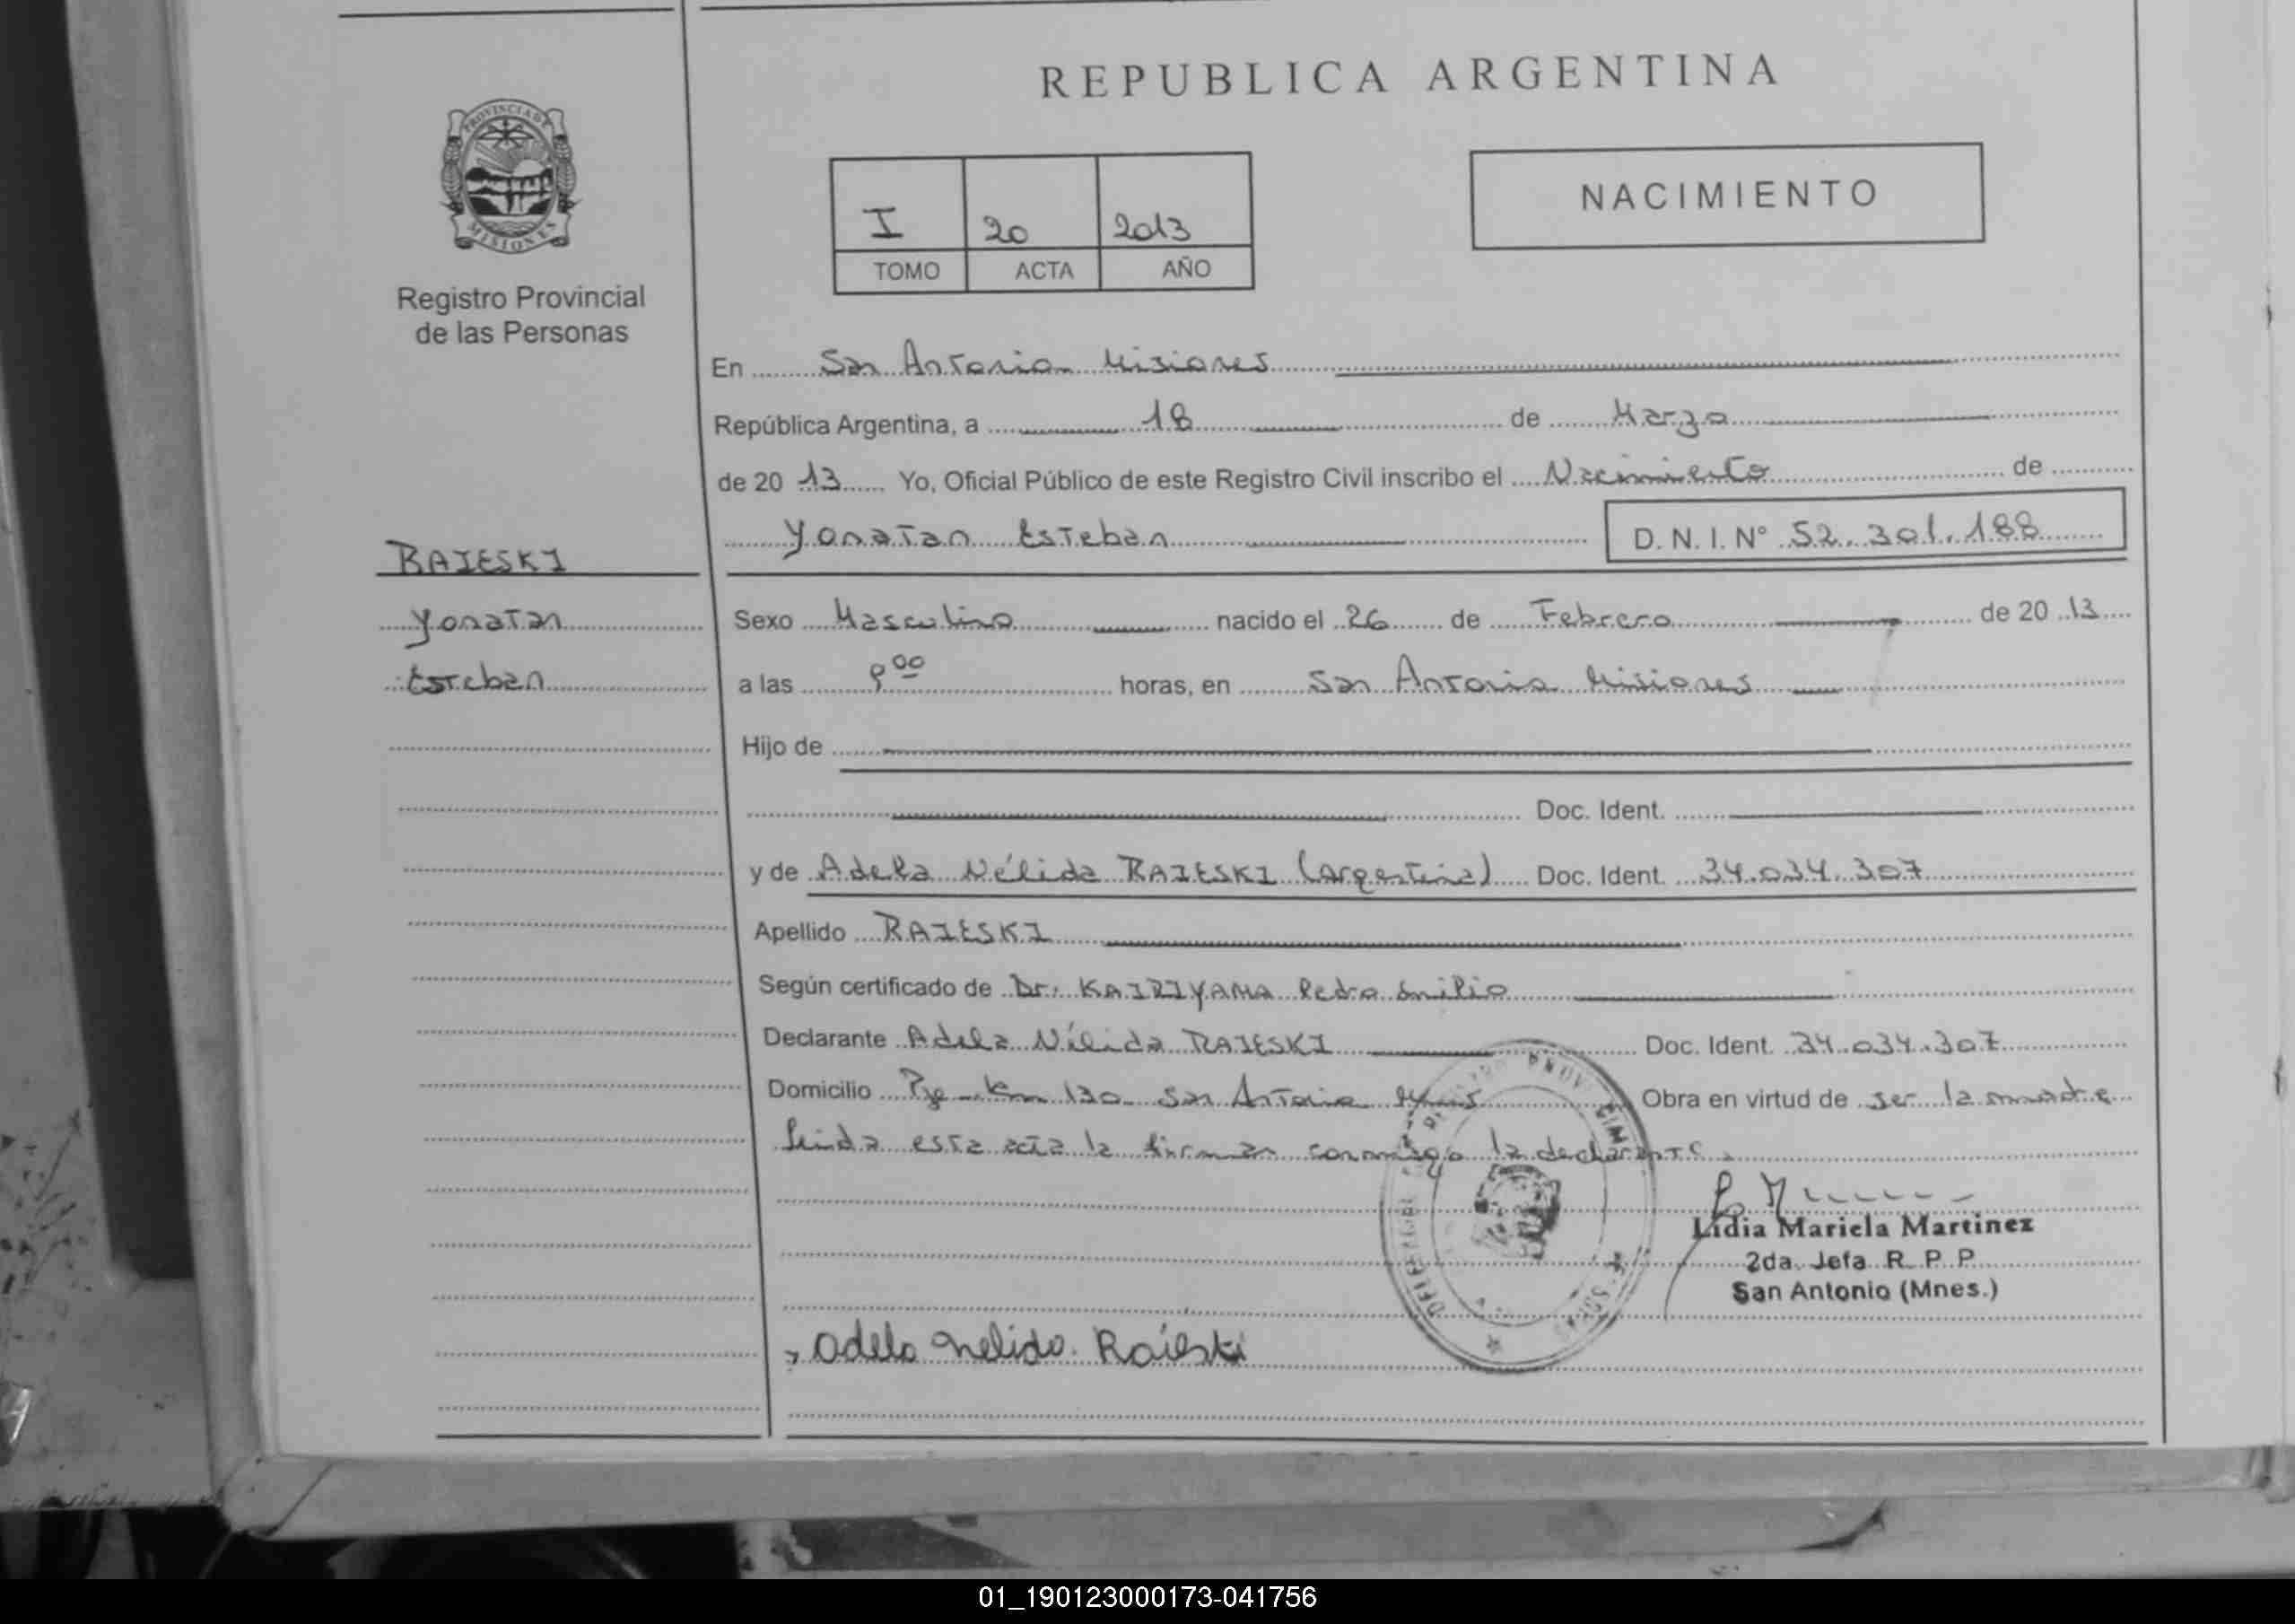 REPUBLICA ARGENTINA
PROVINCIA DE
MISIONES
Registro Provincial
de las Personas
I 20 2013
TOMO ACTA AÑO
NACIMIENTO
En San Antonio Misiones
República Argentina, a 18 de Marzo
de 20 13 Yo, Oficial Público de este Registro Civil inscribo el Nacimiento de
Yonatan Esteban D. N. I. Nº 52.301.188
RAIESKI
Yonatan
Esteban
Sexo Masculino nacido el 26 de Febrero de 20 13
a las 9 00 horas, en San Antonio Misiones
Hijo de
Doc. Ident.
y de Adela Nélida RAIESKI (Argentina) Doc. Ident. 34.034.307
Apellido RAIESKI
Según certificado de Dr. Pedro Emilio
Declarante Adela Nélida RAIESKI Doc. Ident. 34.034.307
Domicilio Pje Km 130 San Antonio Obra en virtud de ser la madre
Leida esta acta la firman conmigo la declarante.
Lidia Mariela Martinez
2da. Jefa R. P. P.
San Antonio (Mnes.)
Adela Nelida Raieski
01_190123000173-041756